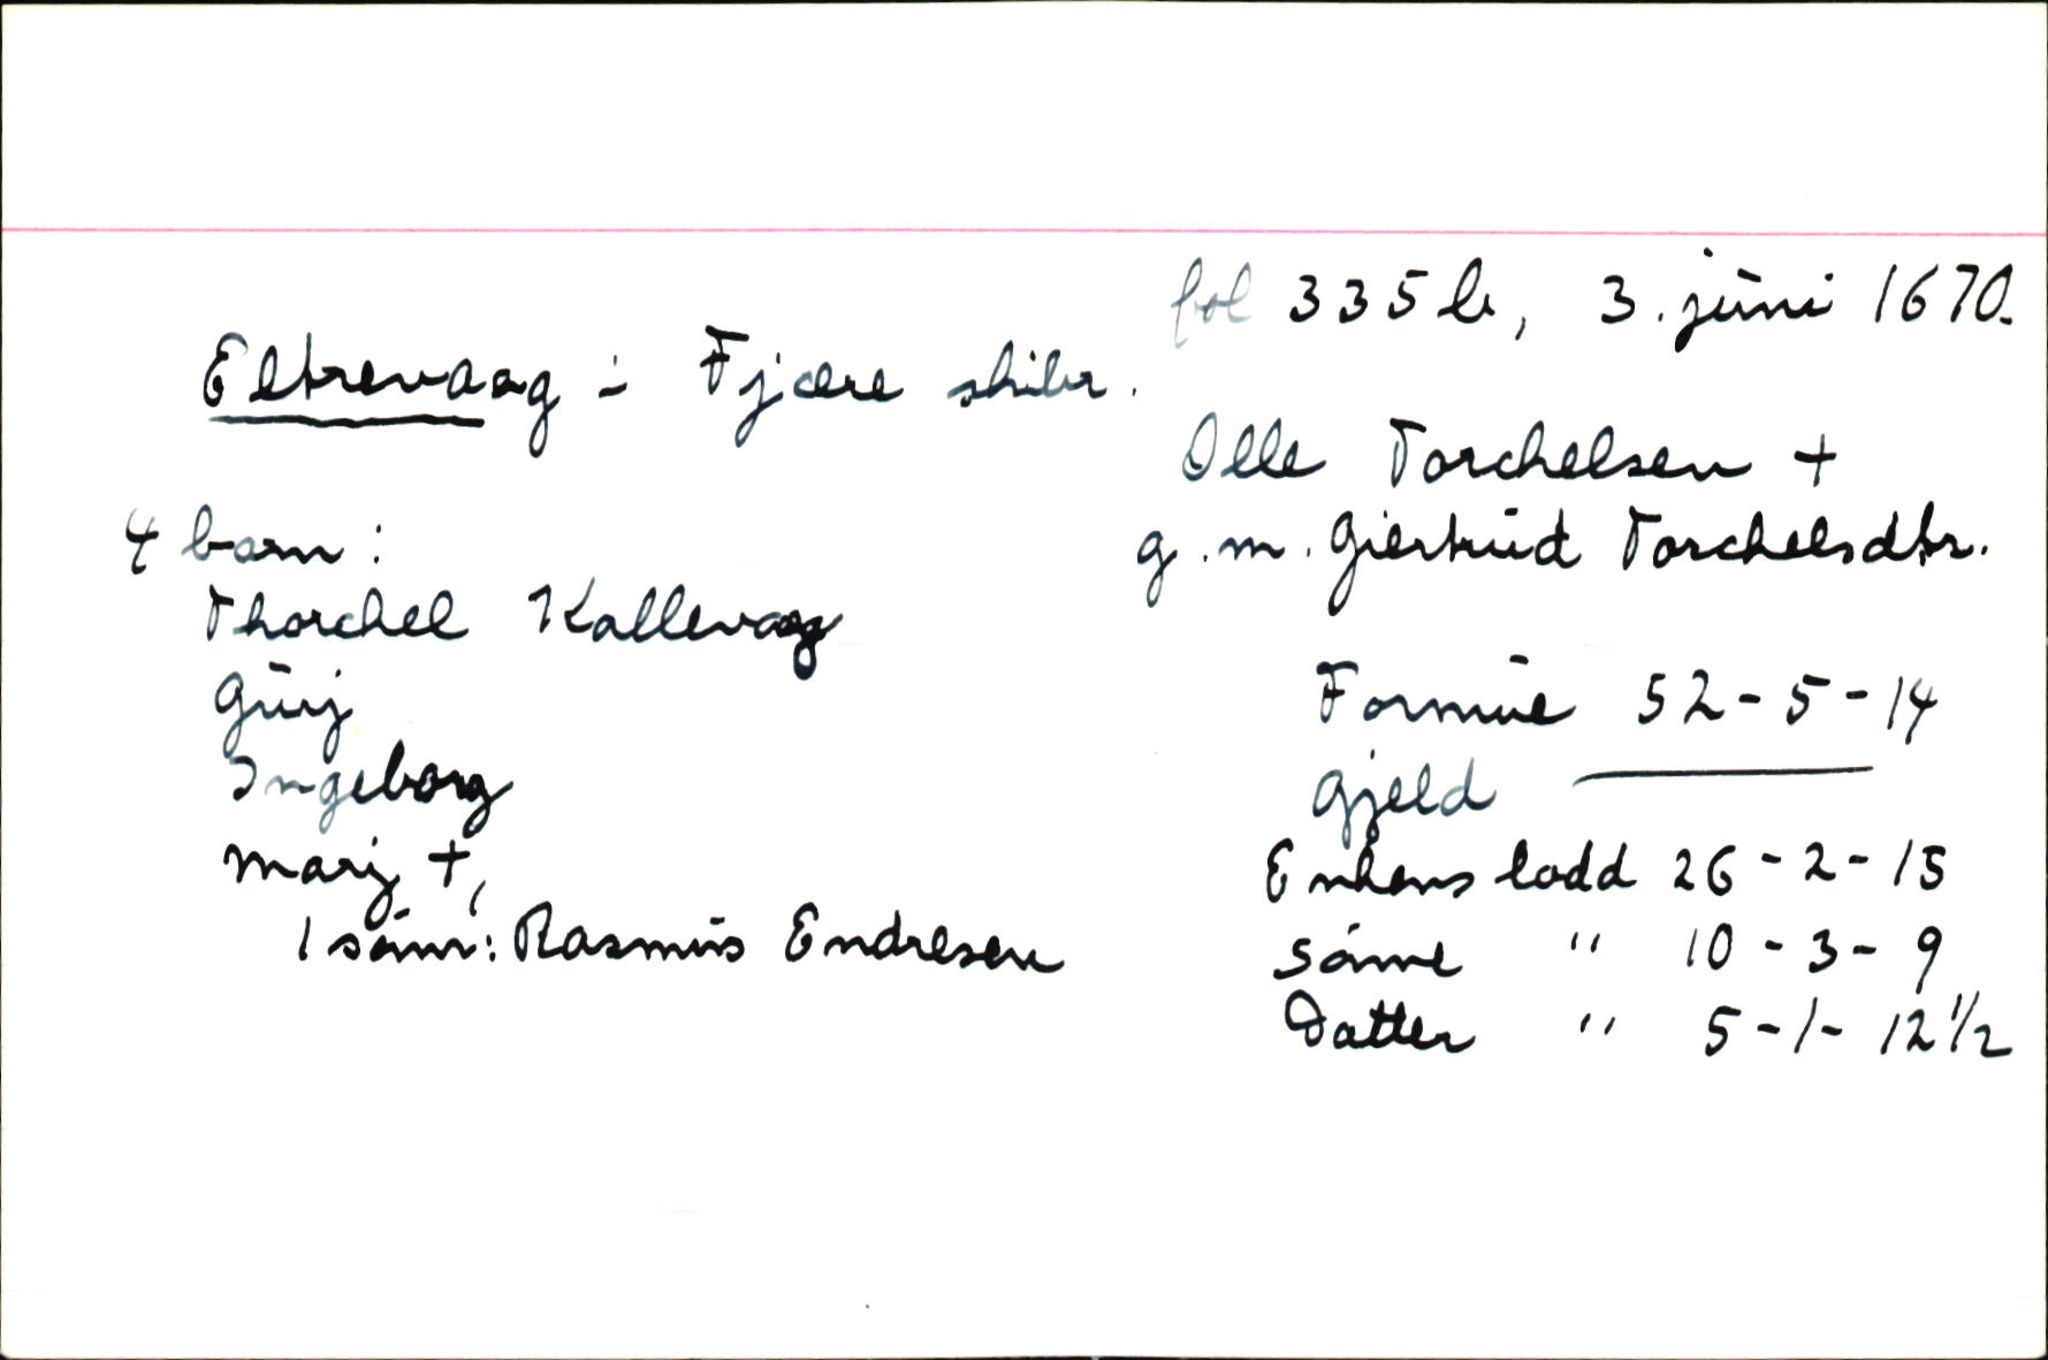 fol 335 b, 3. juni 1670.
Eltrevaag i Fjære skibr.
Olle Torchelsen +
g.m. Giertrud Torchelsdtr.
4 barn:
Thorchel Kallevaag
Gurj
Ingeborg
Marj +,
1 sønn: Rasmus Endresen
Formue 52-5-14
Gjeld ———
Enkens lodd 26-2-15
Sønne " 10-3-9
Datter " 5-1-12 1/2